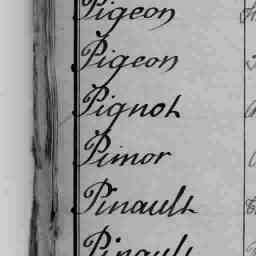 Pigeon
Pigeon
Pignot
Pimor
Pinault
Pinault